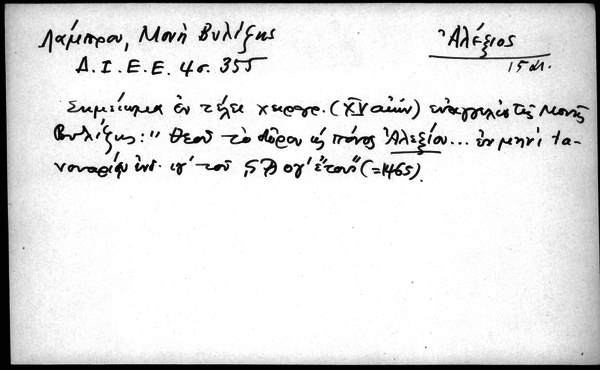 Λάμπρου, Μονὴ Βυλίζης
Ἀλέξιος
Δ.Ι.Ε.Ε. 4 σ. 355
15 αι.
Σημείωμα ἐν τέλει χειρογρ. (XV αἰών) εὐαγγελίου τῆς Μονῆς
Βυλίζης: "Θεοῦ τὸ δῶρον κ̀ πόνος Ἀλεξίου... ἐν μηνὶ Ἰα-
νουαρίῳ ἰνδ. ιγ' τοῦ ͵ϛϡογ' ἔτους" (=1465).